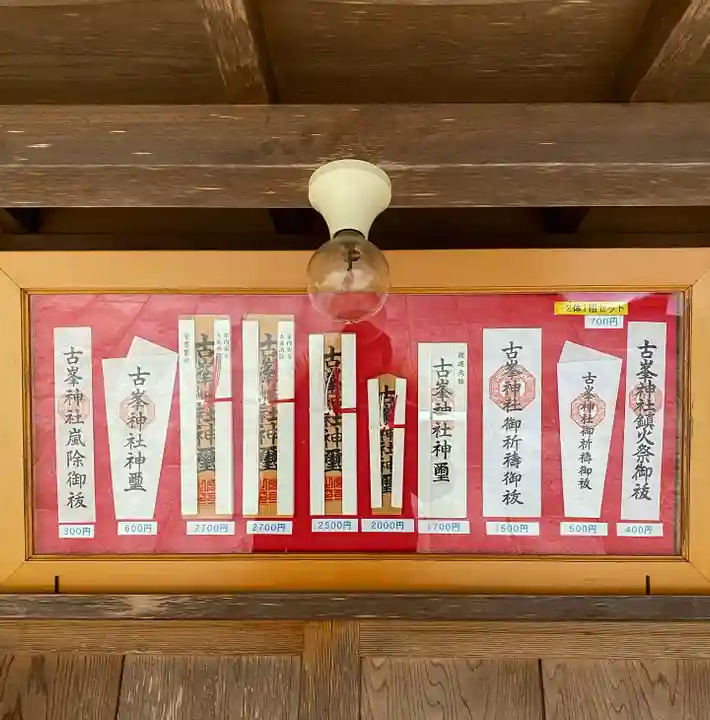 2体1組セット
700円
古峯神社嵐除御祓
300円
古峯神社神璽
600円
古峯神社神璽
2700円
家内安全
火難消除
古峯神社神璽
2700円
古峯神社神璽
2500円
古峯神社神璽
2000円
古峯神社神璽
1700円
古峯神社御祈祷御祓
1500円
古峯神社御祈祷御祓
500円
古峯神社鎮火祭御祓
400円